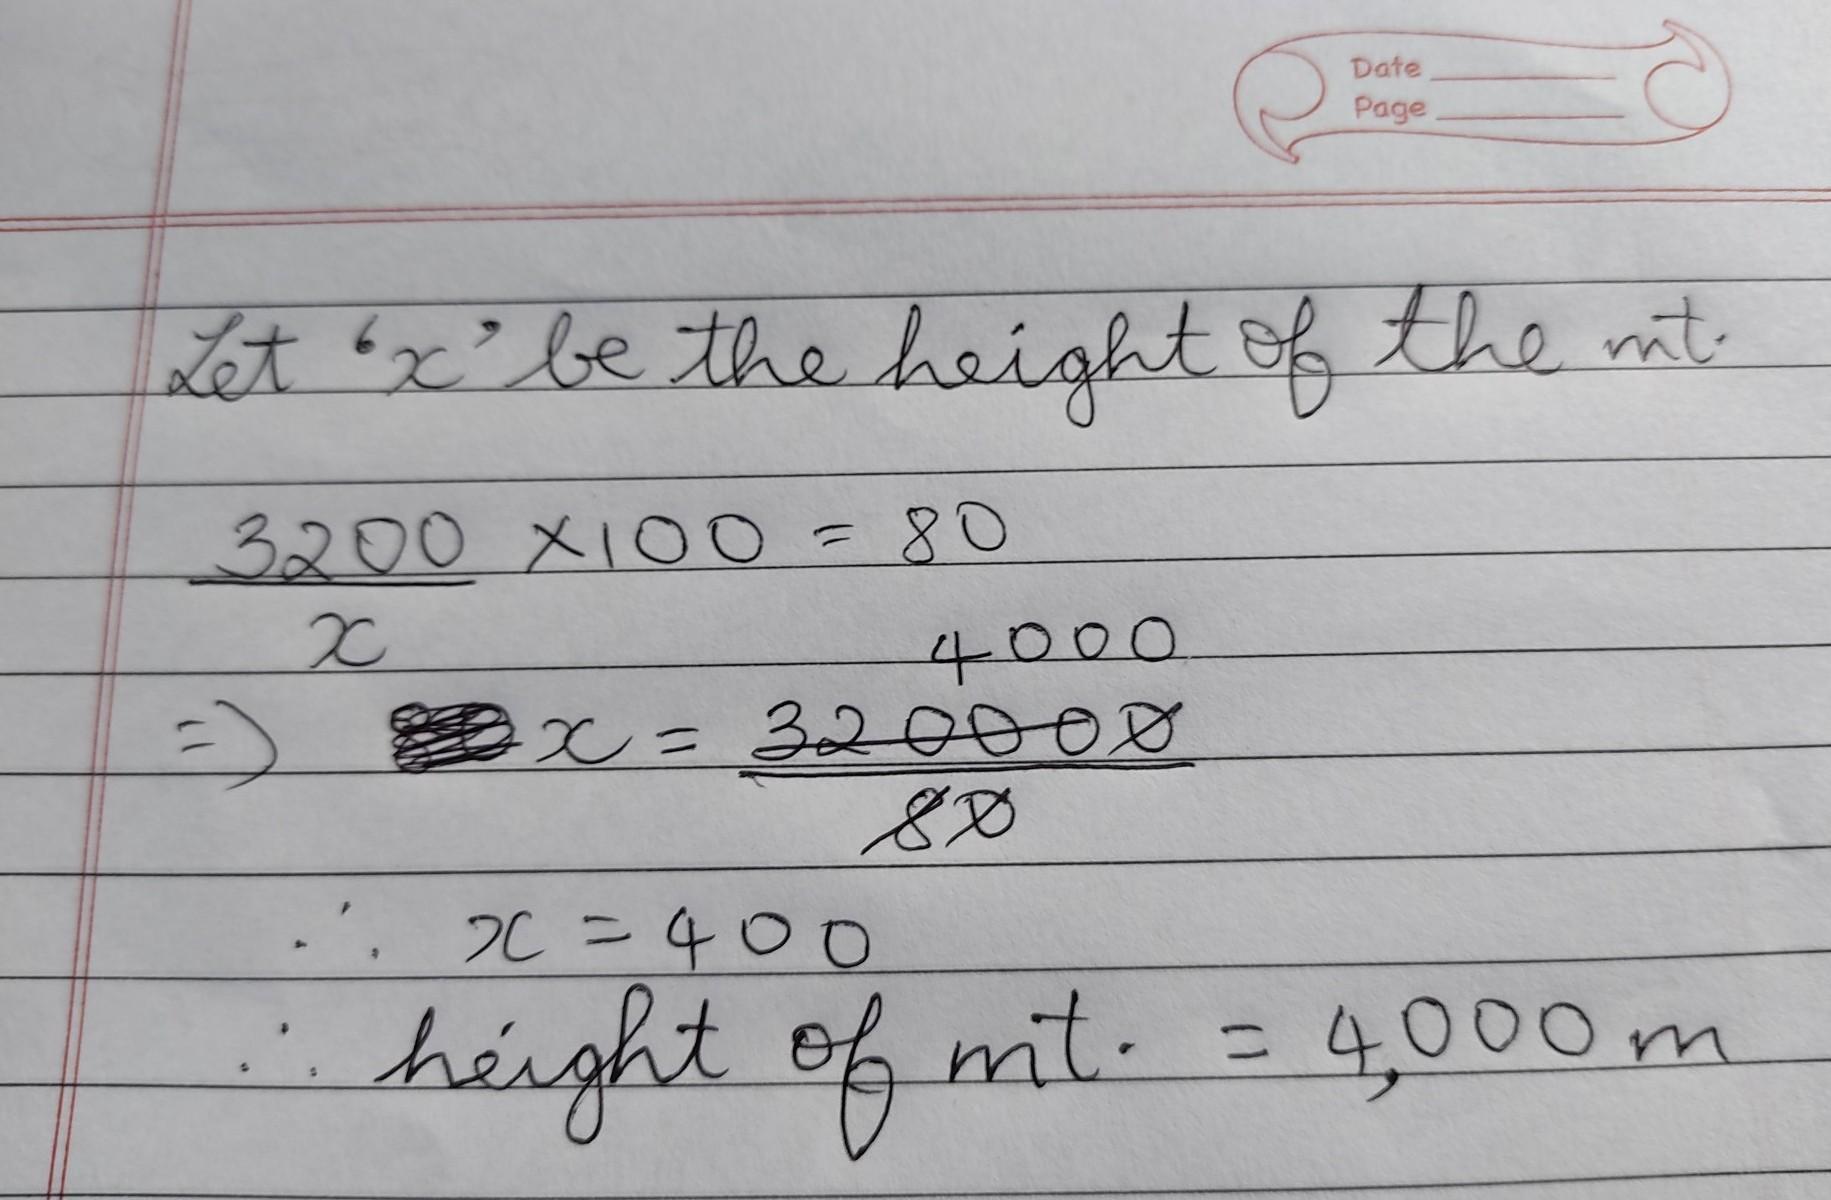 Date
Page
Let ‘x’ be the height of the mt.
3200 ×100 = 80
x
4000
=> x = 320000
80
∴ x = 400
∴ height of mt. = 4,000 m